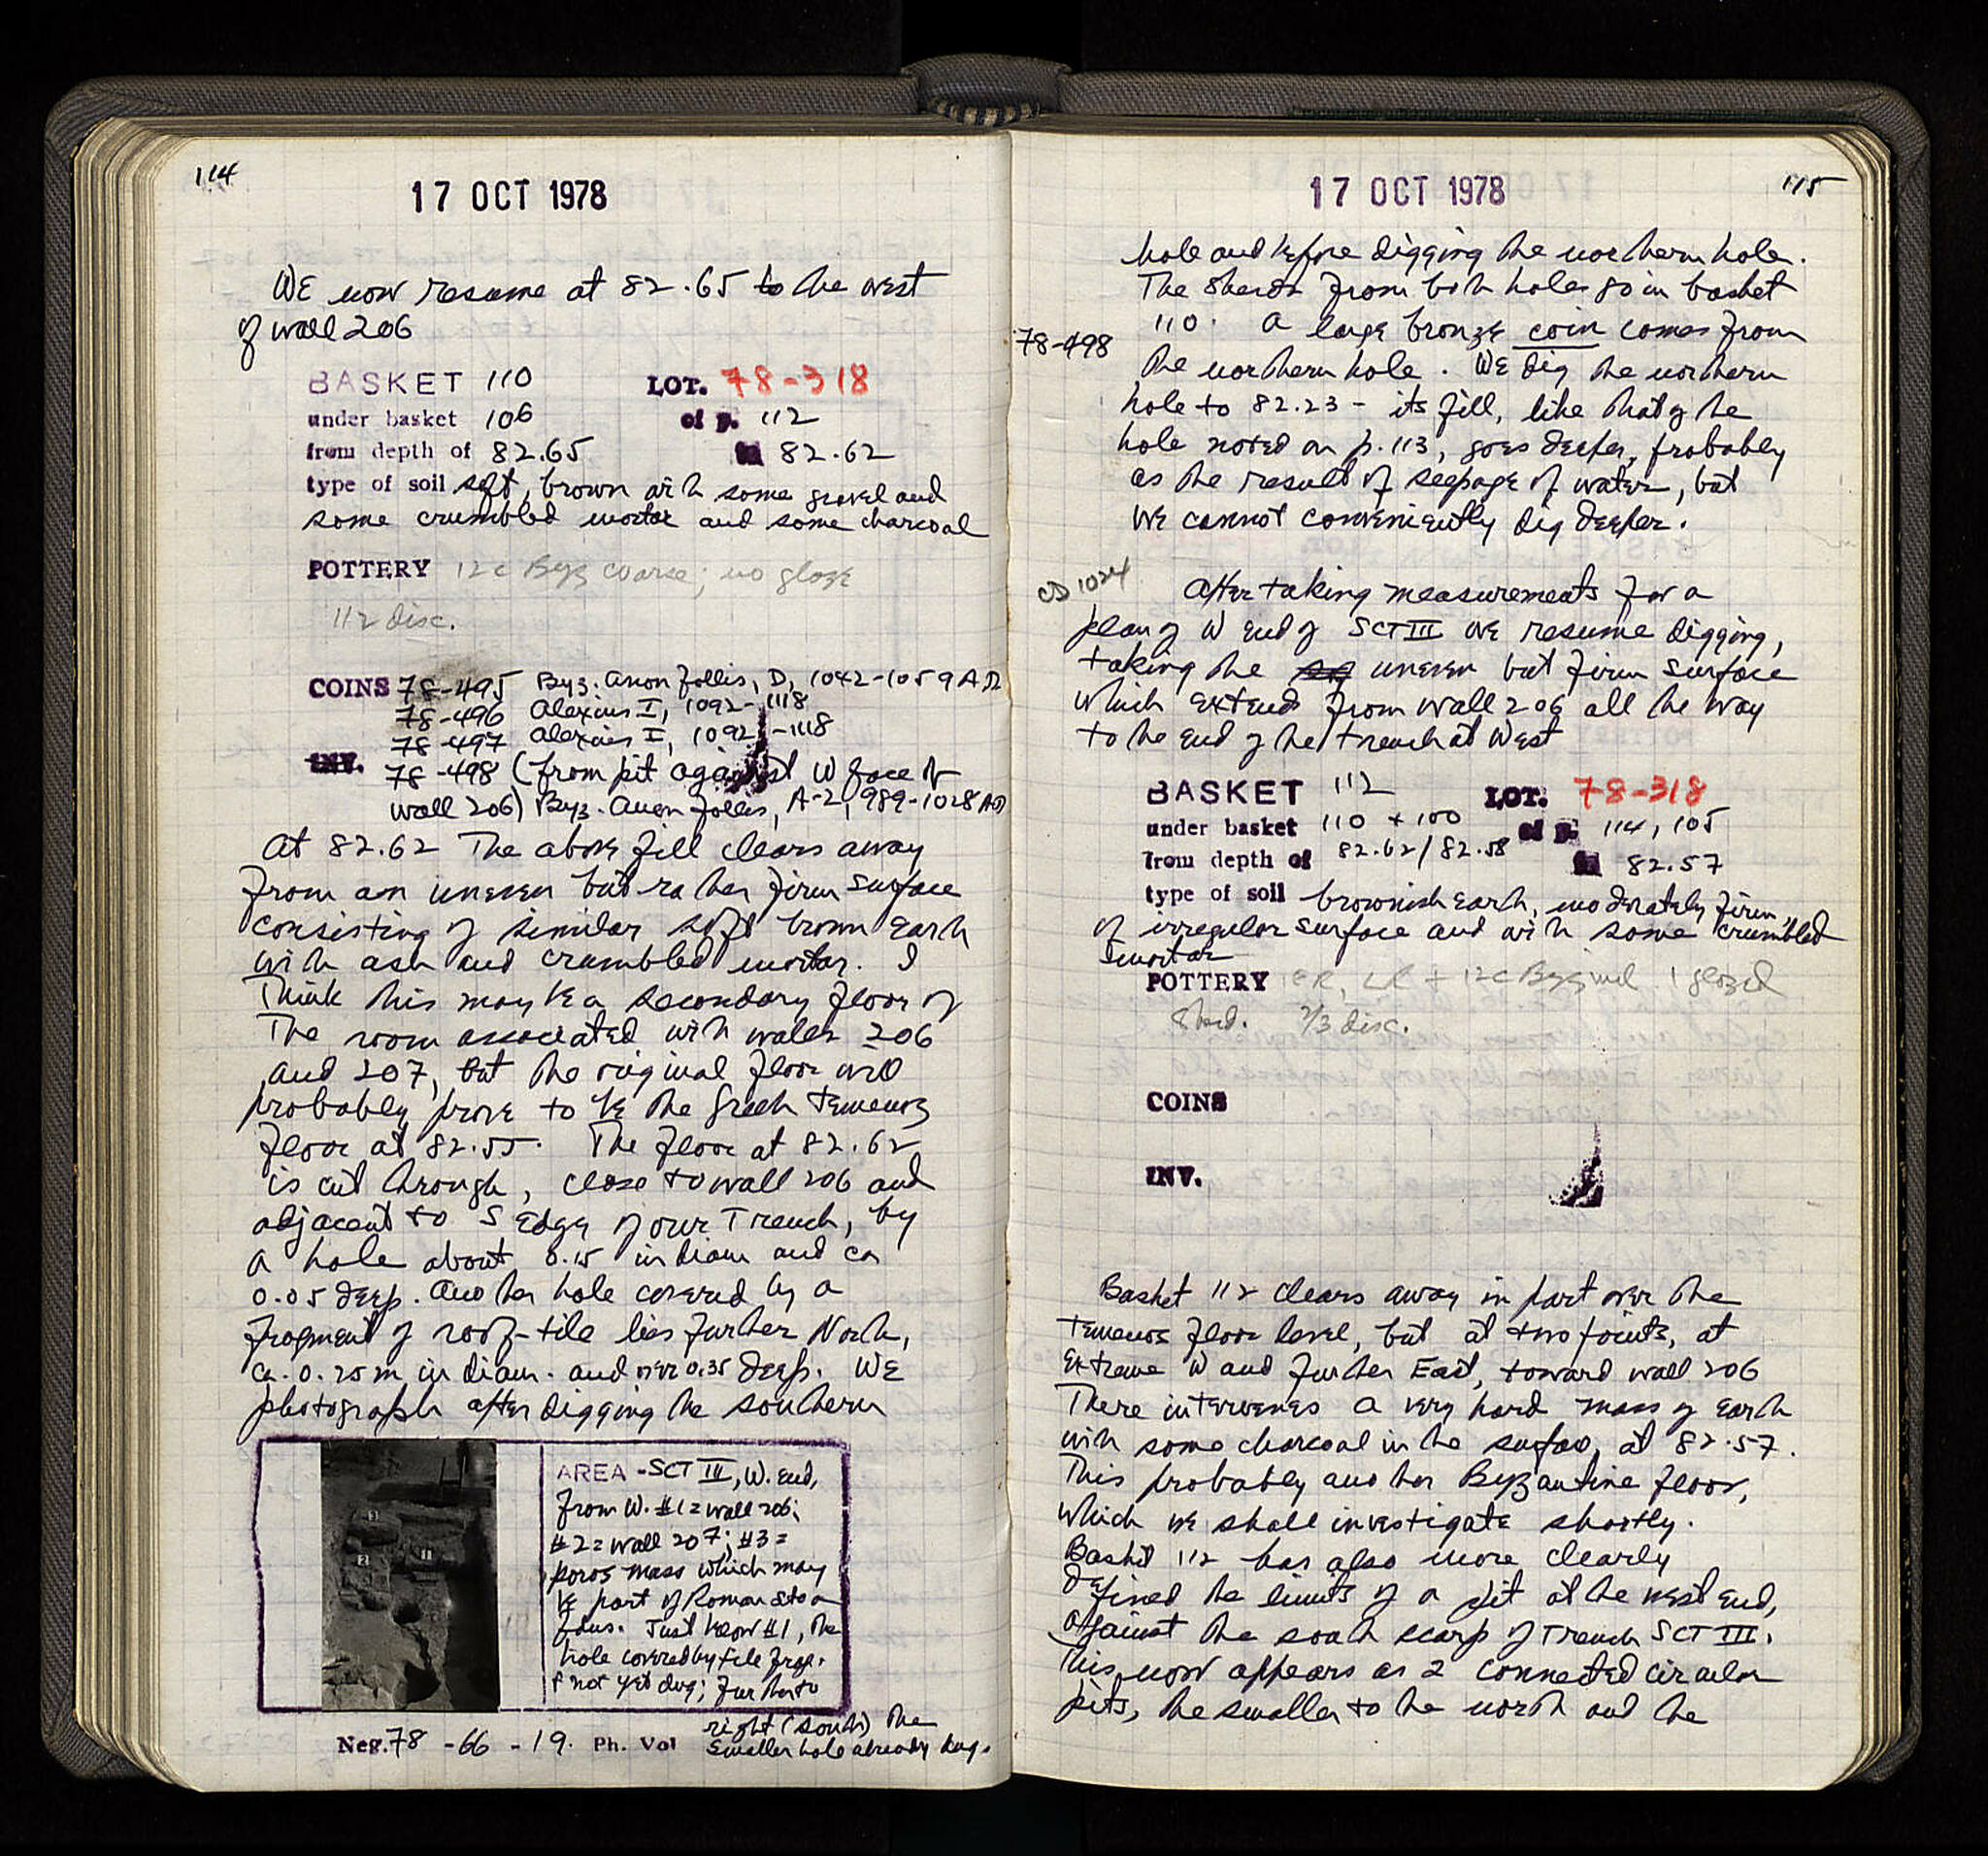 114
17 OCT 1978
WE now resume at 82.65 to the west
of wall 206
BASKET 110 LOT. 78-318
under basket 106 of p. 112
from depth of 82.65 to 82.62
type of soil soft, brown with some gravel and
some crumbled mortar and some charcoal
POTTERY 12c Byz coarse; no glaze
112 disc.
COINS 78-495 Byz. Anon follis, D, 1042-1059 AD
78-496 Alexius I, 1092-1118
78-497 Alexius I, 1092-1118
INV. 78-498 (from pit against W face of
wall 206) Byz. Anon follis, A-2, 989-1028 AD
At 82.62 The above fill clears away
from an uneven but rather firm surface
consisting of similar soft brown earth
with ash and crumbled mortar. I
Think this may be a secondary floor of
The room associated with walls 206
and 207, but the original floor will
probably prove to be the Greek temenos
floor at 82.55. The floor at 82.62
is cut through, close to wall 206 and
adjacent to S edge of our Trench, by
a hole about 0.15 in diam and ca
0.05 deep. Another hole covered by a
fragment of roof-tile lies further North,
ca. 0.25 m in diam. and over 0.35 deep. WE
photograph after digging the southern
AREA - SCT III, W. End,
from W. #1 = wall 206;
#2 = wall 207; #3 =
poros mass which may
be part of Roman stoa
fdns. Just below #1, the
hole covered by tile frag.
& not yet dug; further to
right (south) the
smaller hole already dug.
Neg. 78 - 66 - 19. Ph. Vol
115
17 OCT 1978
hole and before digging the northern hole.
The Sherds from both holes go in basket
110. A large bronze coin comes from
78-498
the northern hole. WE dig the northern
hole to 82.23 - its fill, like that of the
hole noted on p. 113, goes deeper, probably
as the result of seepage of water, but
we cannot conveniently dig deeper.
CD 1024
After taking measurements for a
plan of W end of SCT III we resume digging,
taking the uneven but firm surface
which extends from wall 206 all the way
to the end of the trench at West
BASKET 112 LOT. 78-318
under basket 110 + 100 of p. 114, 105
from depth of 82.62/82.58 to 82.57
type of soil brownish earth, moderately firm,
of irregular surface and with some crumbled
mortar
POTTERY ER, LR + 12c Byz incl 1 glazed
Sherd. 2/3 disc.
COINS
INV.
Basket 112 clears away in part over the
temenos floor level, but at two points, at
extreme W and further East, toward wall 206
There intervenes a very hard mass of earth
with some charcoal in the surface, at 82.57.
This probably another Byzantine floor,
which we shall investigate shortly.
Basket 112 has also more clearly
defined the limits of a pit at the west end,
against the south scarp of Trench SCT III.
This now appears as 2 connected circular
pits, the smaller to the north and the